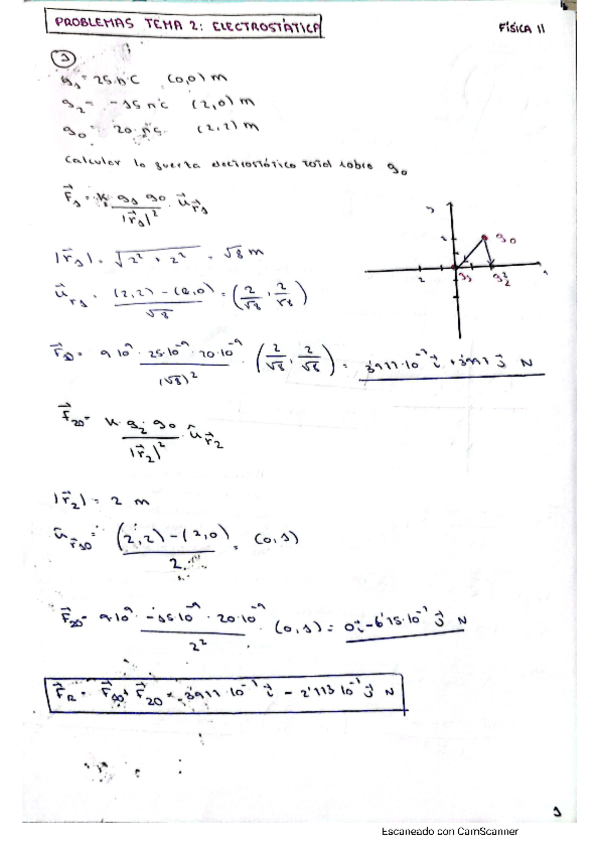 PROBLEMAS TEMA 2: ELECTROSTÁTICA
FÍSICA II
1
q₁ = 25 nC (0,0) m
q₂ = -15 nC (2,0) m
q₀ = 20 nC (2,2) m
Calcular la fuerza electrostática total sobre q₀
F⃗₁ = K q₁ q₀ / |r⃗₁|² · u⃗r⃗₁
|r⃗₁| = √(2² + 2²) = √8 m
u⃗r₁ = (2,2) - (0,0) / √8 = (2/√8, 2/√8)
F⃗₁₀ = 9·10⁹ · 25·10⁻⁹ · 20·10⁻⁹ / (√8)² · (2/√8, 2/√8) = 3'977·10⁻⁷ i⃗ + 3'977 j⃗ N
F⃗₂₀ = K · q₂ · q₀ / |r⃗₂|² · u⃗r⃗₂
|r⃗₂| = 2 m
u⃗r⃗₂₀ = (2,2) - (2,0) / 2 = (0,1)
F⃗₂₀ = 9·10⁹ · -15·10⁻⁹ · 20·10⁻⁹ / 2² (0,1) = 0i⃗ - 6'75·10⁻⁷ j⃗ N
F⃗R = F⃗₁₀ + F⃗₂₀ = 3'977·10⁻⁷ i⃗ - 2'773·10⁻⁷ j⃗ N
2
q₀
2
q₁
q₂
1
Escaneado con CamScanner